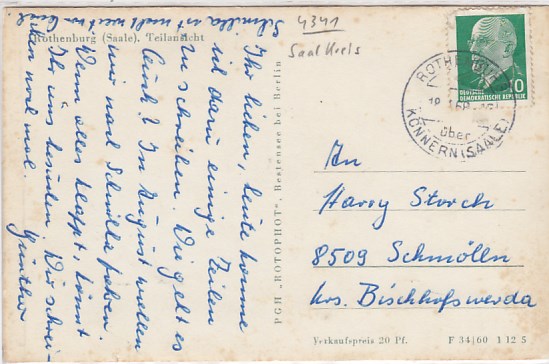 4341
Saalkreis
Rothenburg (Saale), Teilansicht
Ihr lieben, heute komme
ich dazu einige Zeilen
zu schreiben. Wie geht es
Euch? In August wollen
wir nach Schmölln fahren.
Wenn alles klappt, könnt
Ihr uns besuchen. Wir schrei-
ben noch mal.
Günther
Schmölln ist nicht weit
PGH „ROTOPHOT“, Bestensee bei Berlin
10
DEUTSCHE
DEMOKRATISCHE REPUBLIK
ROTHENBURG
über
KÖNNERN (SAALE)
An
Harry Storch
8509 Schmölln
Krs. Bischofswerda
Verkaufspreis 20 Pf.
F 34/60 1 12 5